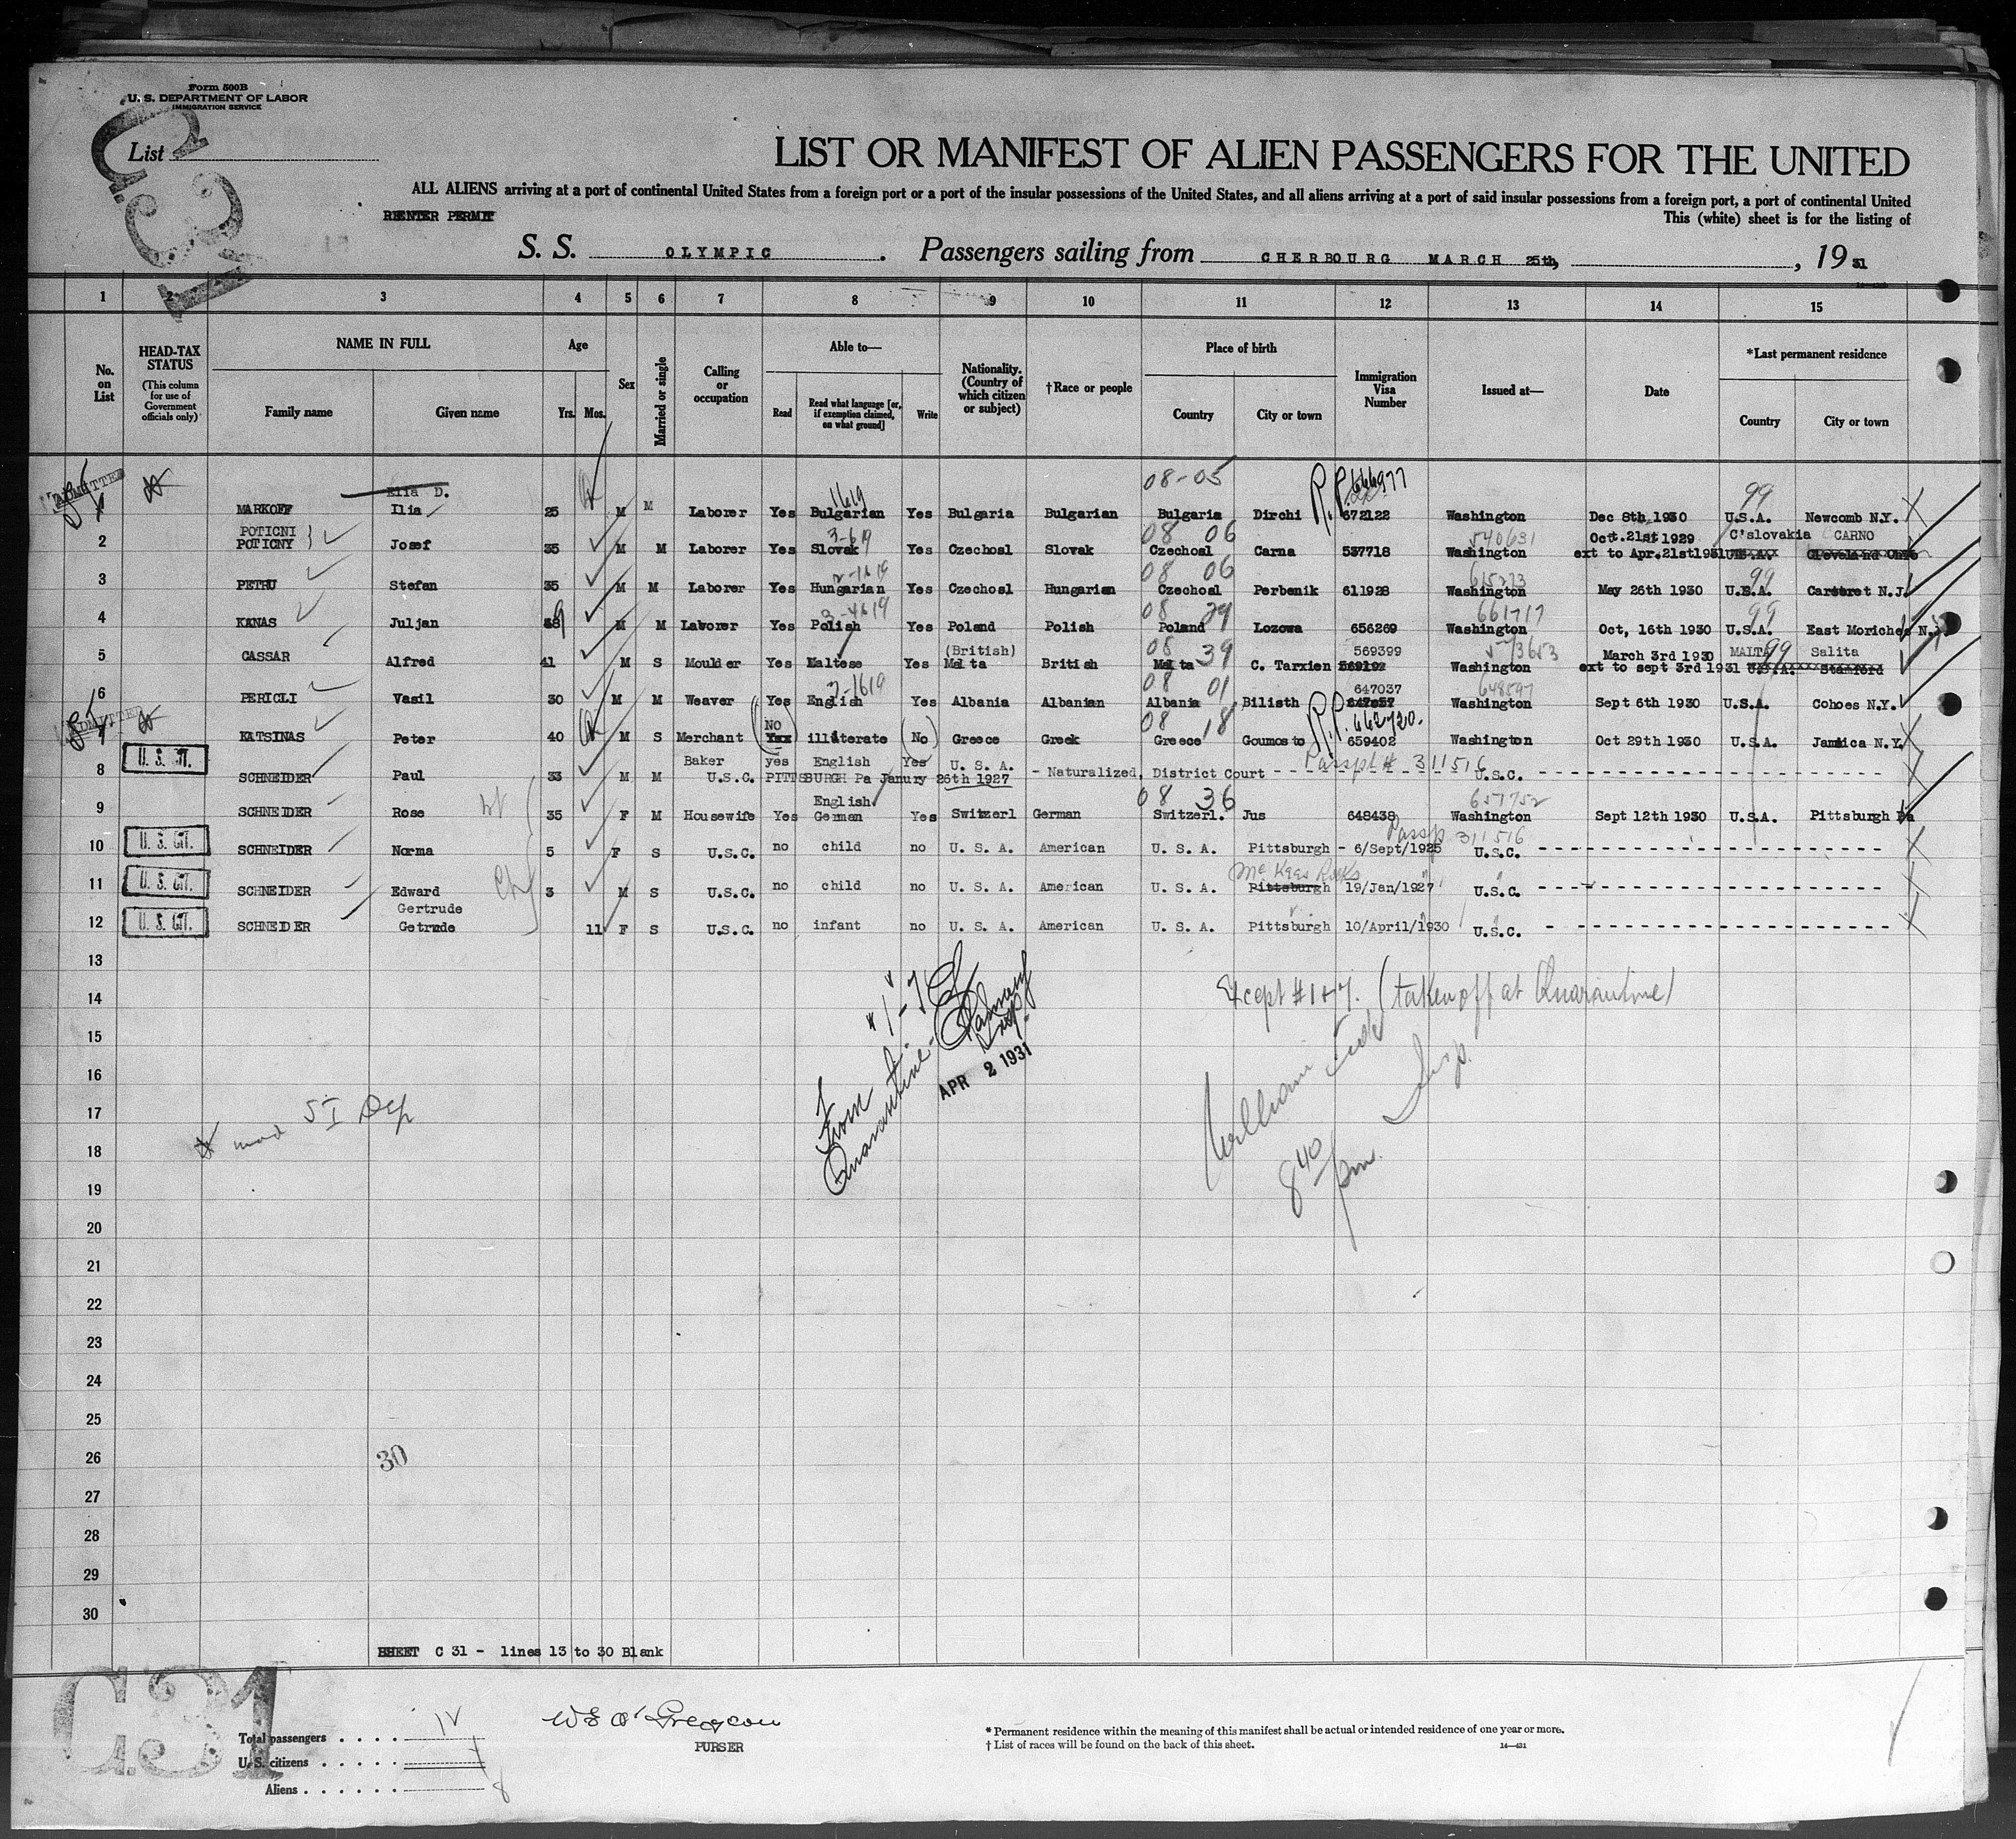 Form 500B
U. S. DEPARTMENT OF LABOR
IMMIGRATION SERVICE
List
C31
LIST OR MANIFEST OF ALIEN PASSENGERS FOR THE UNITED
ALL ALIENS arriving at a port of continental United States from a foreign port or a port of the insular possessions of the United States, and all aliens arriving at a port of said insular possessions from a foreign port, a port of continental United
REENTER PERMIT
This (white) sheet is for the listing of
S. S. OLYMPIC. Passengers sailing from CHERBOURG MARCH 25th, , 19 31
1 2 3 4 5 6 7 8 9 10 11 12 13 14 15
No. on List HEAD-TAX STATUS (This column for use of Government officials only) NAME IN FULL Family name Given name Age Yrs. Mos. Sex Married or single Calling or occupation Able to— Read Read what language [or, if exemption claimed, on what ground] Write Nationality. (Country of which citizen or subject) †Race or people Place of birth Country City or town Immigration Visa Number Issued at— Date *Last permanent residence Country City or town
ADMITTED Elia D. 1619 08-05 R.P. 666977 99
1 MARKOFF Ilia 25 M M Laborer Yes Bulgarian Yes Bulgaria Bulgarian Bulgaria Dirchi 672122 Washington Dec 8th 1930 U.S.A. Newcomb N.Y.
POTICNI 3-619 08 06 540631 Oct. 21st 1929 C'slovakia CARNO
2 POTICNY Josef 35 M M Laborer Yes Slovak Yes Czechosl Slovak Czechosl Carna 537718 Washington ext to Apr.21st1931 U.S.A. Cleveland Ohio
2-1619 08 06 615273 99
3 PETRU Stefan 35 M M Laborer Yes Hungarian Yes Czechosl Hungarian Czechosl Perbenik 611928 Washington May 26th 1930 U.S.A. Carteret N.J.
3-4619 08 29 661717 99
4 KANAS Juljan 39 M M Laborer Yes Polish Yes Poland Polish Poland Lozowa 656269 Washington Oct, 16th 1930 U.S.A. East Moriches N.Y.
(British) 08 39 569399 March 3rd 1930 MALTA 99 Salita
5 CASSAR Alfred 41 M S Moulder Yes Maltese Yes Malta British Malta C. Tarxien 569192 Washington ext to sept 3rd 1931 U.S.A. Stamford
2-1619 08 01 647037 648597
6 PERICLI Vasil 30 M M Weaver Yes English Yes Albania Albanian Albania Bilisth Washington Sept 6th 1930 U.S.A. Cohoes N.Y.
ADMITTED NO 08 18 R.P. 662720.
7 KATSINAS Peter 40 M S Merchant Yxx illiterate (No) Greece Greek Greece Goumosto 659402 Washington Oct 29th 1930 U.S.A. Jamaica N.Y.
U. S. CIT. Baker yes English Yes U. S. A. Passpt # 311516
8 SCHNEIDER Paul 33 M M U.S.C. PITTSBURGH Pa Janury 26th 1927 - Naturalized, District Court - - - - U.S.C. - - - -
English 08 36 657752
9 SCHNEIDER Rose 35 F M Housewife Yes German Yes Switzerl German Switzerl. Jus 648438 Washington Sept 12th 1930 U.S.A. Pittsburgh Pa
Passp 311516
10 U. S. CIT. SCHNEIDER Norma 5 F S U.S.C. no child no U. S. A. American U. S. A. Pittsburgh - 6/Sept/1925 U.S.C. - - - -
Mc Kees Rocks
11 U. S. CIT. SCHNEIDER Edward 3 M S U.S.C. no child no U. S. A. American U. S. A. Pittsburgh 19/Jan/1927 U.S.C. - - - -
Gertrude
12 U. S. CIT. SCHNEIDER Getrude 11 F S U.S.C. no infant no U. S. A. American U. S. A. Pittsburgh 10/April/1930 U.S.C. - - - -
13
14 Except #1+7. (taken off at Quarantine)
#1-7
15
From Quarantine
Insp.
APR 2 1931
William
Insp.
8 40 pm.
16
17 SI
18
19
20
21
22
23
24
25
26 30
27
28
29
30
SHEET C 31 - lines 13 to 30 Blank
C31
Total passengers . . . . 12
U. S. citizens . . . . . 4
Aliens . . . . . . 8
PURSER
* Permanent residence within the meaning of this manifest shall be actual or intended residence of one year or more.
† List of races will be found on the back of this sheet.
14—431